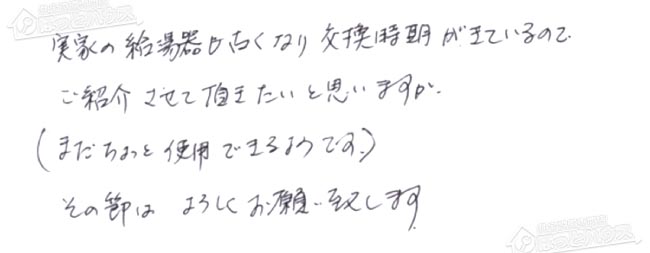 実家の給湯器も古くなり交換時期がきているので
ご紹介させて頂きたいと思いますが、
(まだちょっと使用できるようです。)
その節は よろしくお願い致します。